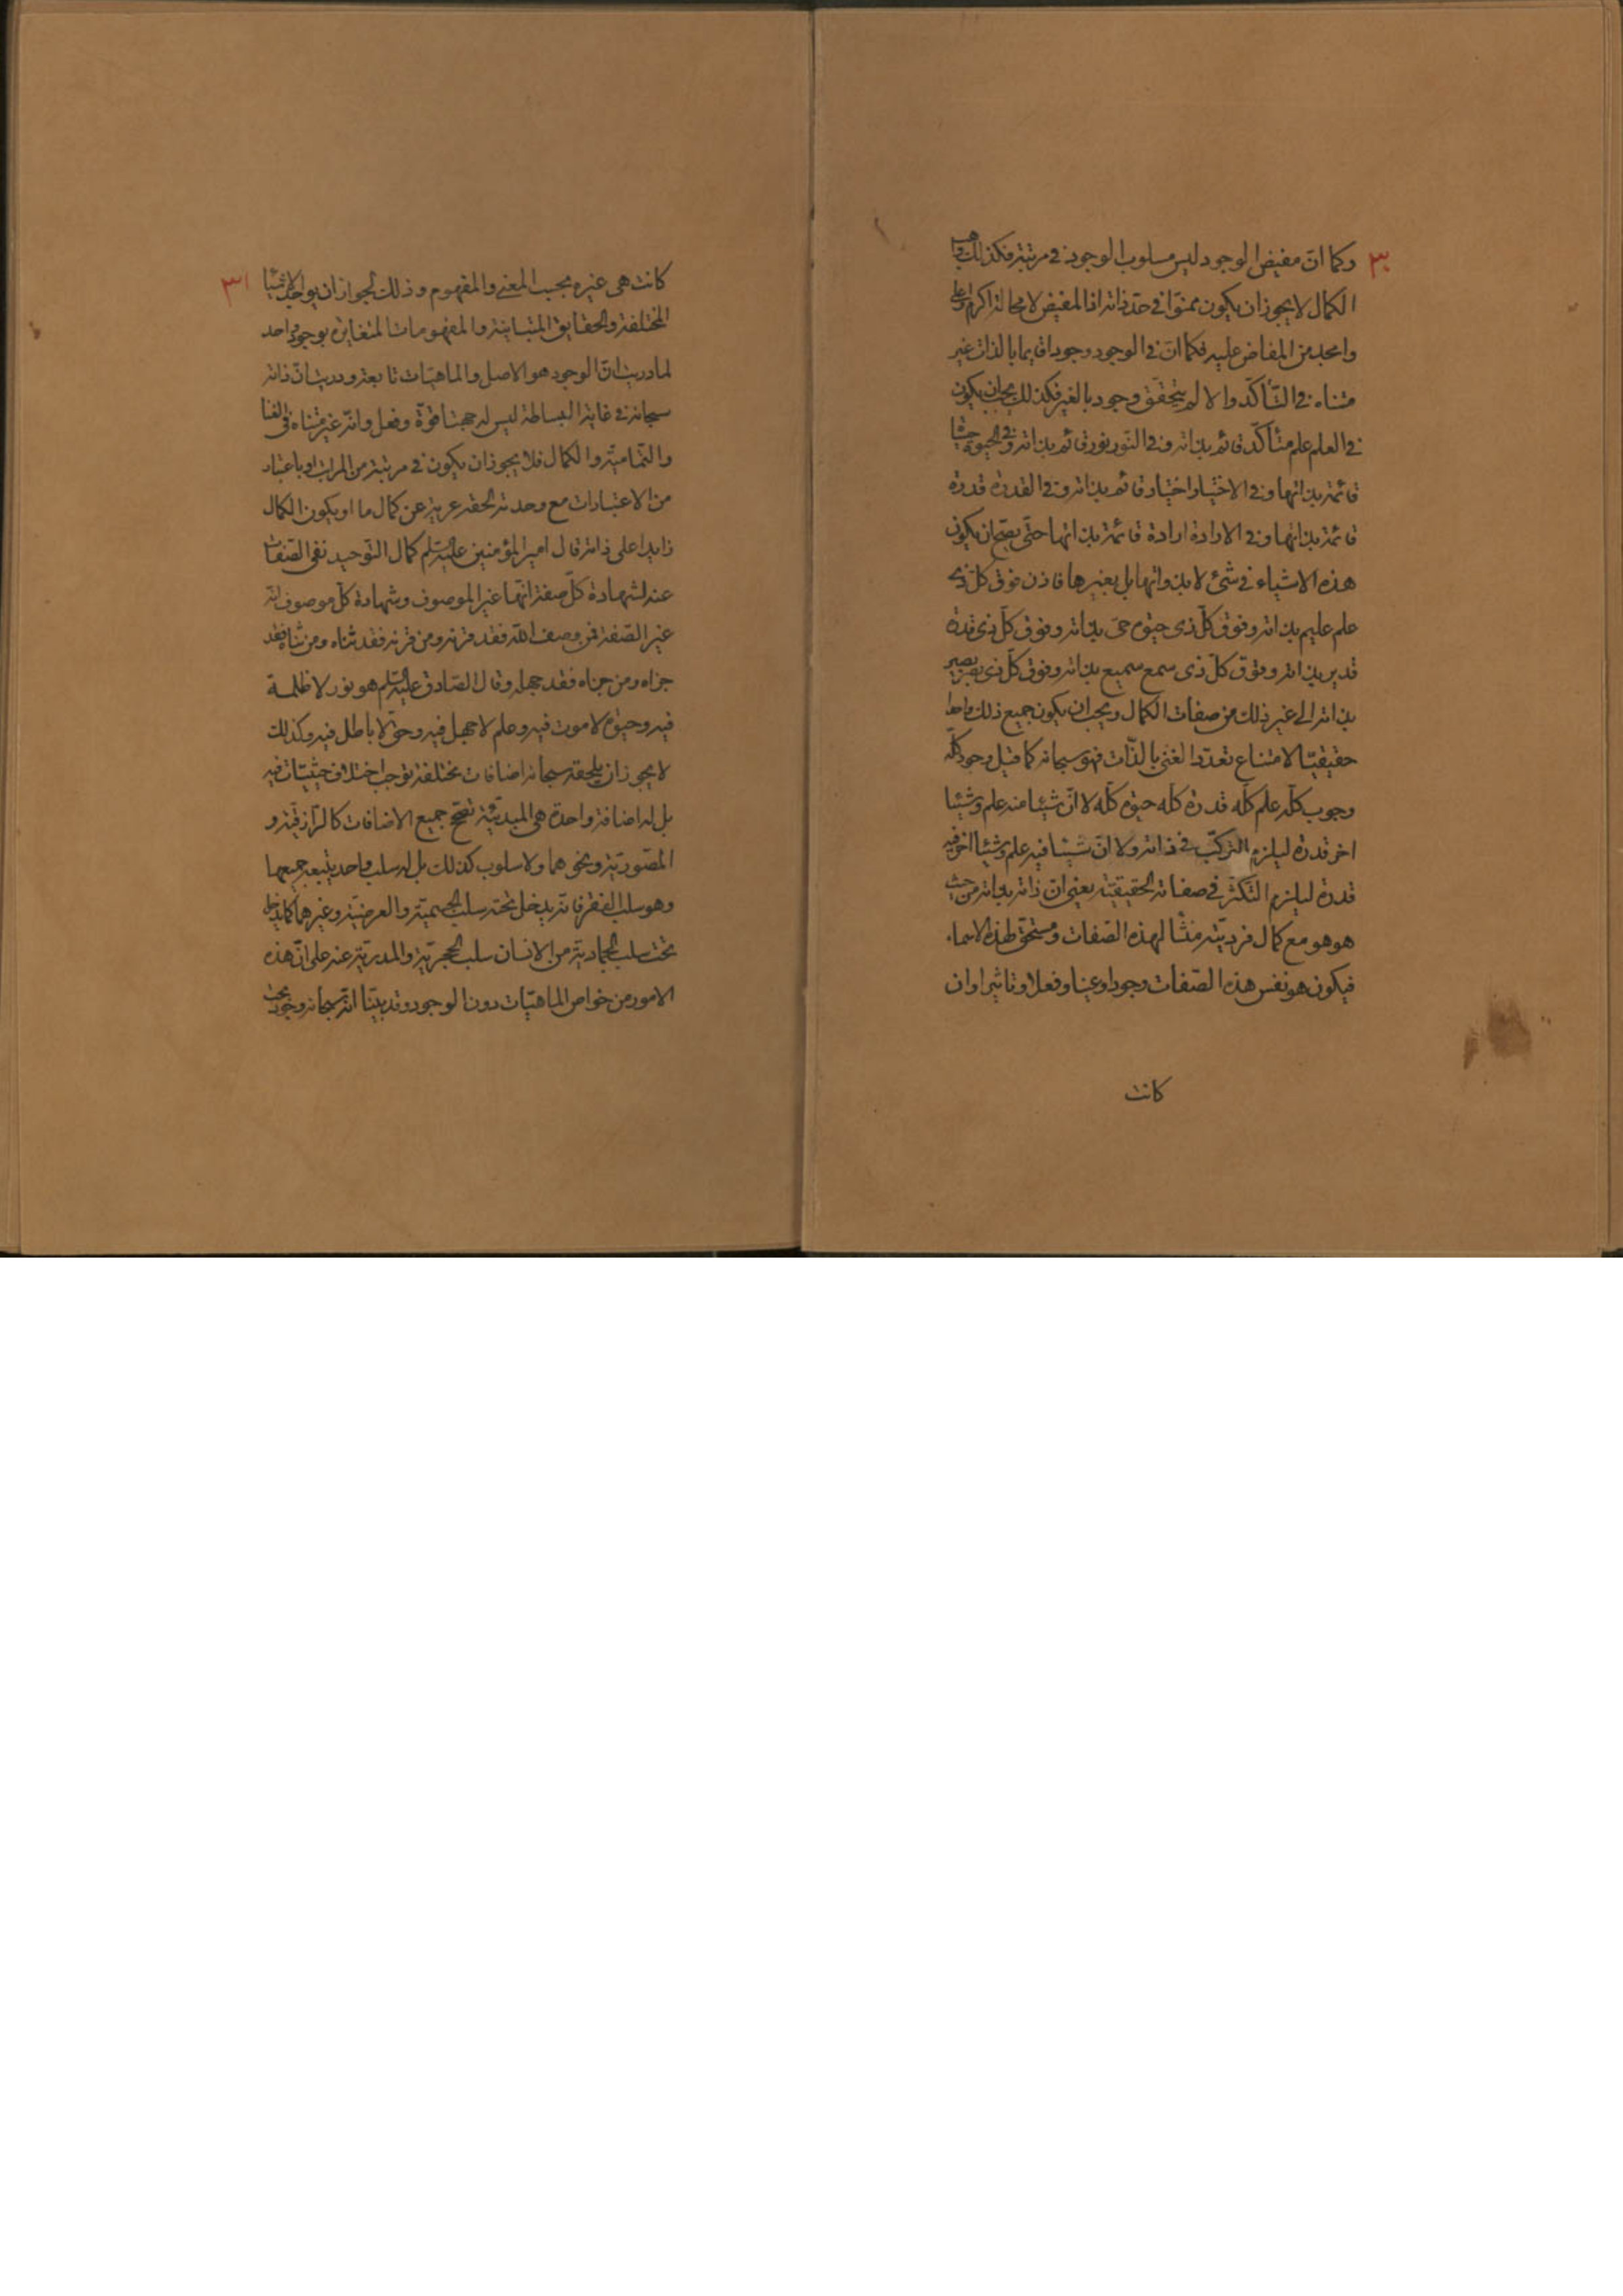 ٣٠
وكما انّ مفيض الوجود ليس مسلوب الوجود في مرتبة فكذلك واهب
الكمال لا يجوز ان يكون ممنوّا في حدّ ذاته اذا المفيض لا محالة اكرم واعلى
وامجد من المفاض عليه فكما انّ في الوجود وجودا قايما بالذات غير
متناه في التّأكّد والا لم يتحقّق وجود بالغير فكذلك يجب ان يكون
في العلم علم متأكّد قائم بذاته وفي النّور نور قائم بذاته وفي الحيوة حيوة
قائمة بذاتها وفي الاختيار اختيار قائم بذاته وفي القدرة قدرة
قائمة بذاتها وفي الارادة ارادة قائمة بذاتها حتّى يصحّ ان يكون
هذه الاشياء في شئ لا بذواتها بل بغيرها فاذن فوق كلّ ذي
علم عليم بذاته وفوق كلّ ذي حيوة حىّ بذاته وفوق كلّ ذي قدرة
قدير بذاته وفوق كلّ ذى سمع سميع بذاته وفوق كلّ ذي بصر بصير
بذاته الى غير ذلك من صفات الكمال ويجب ان يكون جميع ذلك واحدا
حقيقيّا لامتناع تعدّد الغنى بالذّات فهو سبحانه كما قيل وجود كلّه
وجوب كلّه علم كلّه قدرة كلّه حيوة كلّه لا انّ شيئا منه علم وشيئا
اخر قدرة ليلزم التركّب في ذاته ولا انّ شيئا فيه علم وشيئا اخر فيه
قدرة ليلزم التكثّر في صفاته الحقيقيّة يعنى انّ ذاته بذاته من حيث
هو هو مع كمال فرديّته منشأ لهذه الصّفات ومستحقّ لهذه الاسماء
فيكون هو نفس هذه الصّفات وجودا وعينا وفعلا وتاثيرا وان
كانت
٣١
كانت هى غيره بحسب المعنى والمفهوم وذلك لجواز ان يوجد الاشيا
المختلفة والحقايق المتباينة والمفهومات المتغايرة بوجود واحد
لما دريت انّ الوجود هو الاصل والماهيّات تابعة ودريت انّ ذاته
سبحانه في غاية البساطة ليس له جهتا قوّة وفعل وانّه غير متناه في الغنا
والتّماميّة والكمال فلا يجوز ان يكون في مرتبة من المراتب او باعتبار
من الاعتبارات مع وحدته الحقة عرية عن كمال ما او يكون الكمال
زايدا على ذاته قال امير المؤمنين عليه السّلم كمال التّوحيد نفى الصّفات
عنه لشهادة كلّ صفة انّها غير الموصوف وشهادة كلّ موصوف انّه
غير الصّفة فمن وصف اللّه فقد قرنه ومن قرنه فقد ثنّاه ومن ثنّاه فقد
جزّاه ومن جزّاه فقد جهله وقال الصّادق عليه السّلم هو نور لا ظلمة
فيه وحيوة لا موت فيه وعلم لا جهل فيه وحقّ لا باطل فيه وكذلك
لا يجوز ان يلحقه سبحانه اضافات مختلفة توجب اختلاف حيثيّات فيه
بل له اضافة واحدة هى المبدئيّة تصحّح جميع الاضافات كالرّازقيّة و
المصوّريّة ونحوهما ولا سلوب كذلك بل له سلب واحد يتبعه جميعها
وهو سلب الفقر فانّه يدخل تحته سلب الجسميّة والعرضيّة وغيرهما كما يدخل
تحت سلب الجماديّة من الانسان سلب الحجريّة والمدريّة عنه على انّ هذه
الامور من خواص الماهيّات دون الوجود وقد بيّنّا انّه سبحانه وجود بحت